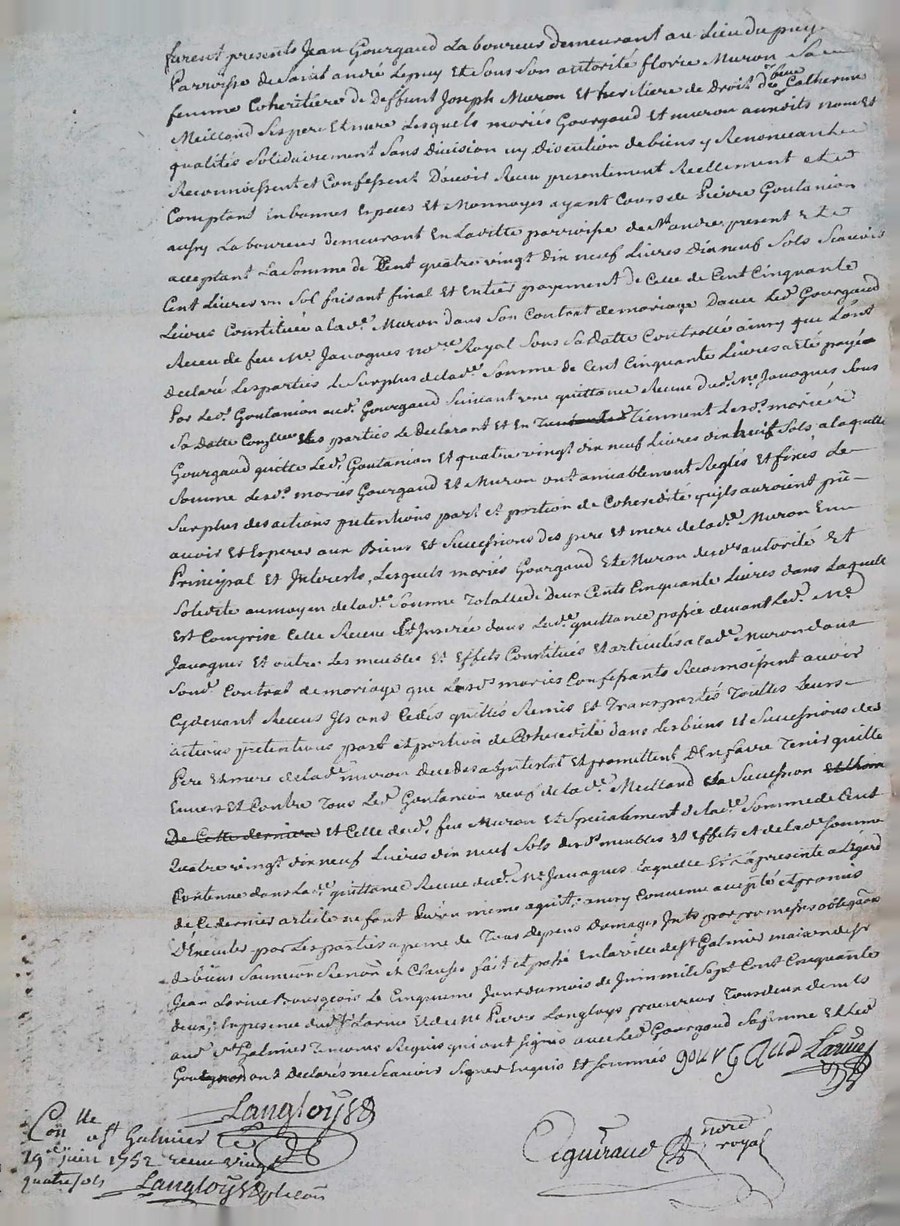 furent presents Jean Gourgaud Laboureur demeurant au Lieu du puy
Parroisse de Saint andré Le puy Et Sous Son autorité florie Muron Sa
femme Coheritiere de deffunt Joseph Muron Et heritiere de Droit de Catherine
Meilland Ses pere Et mere Lesquels mariés Gourgaud et muron auxdits noms Et
qualités Solidairement Sans division ny discution de biens y Renonceant
Reconnoissent et Confessent D'avoir Receu presentement Reellement et
Comptant in bonnes Especes Et Monnoyes ayant Cours de Pierre Goutanion
aussy Laboureur demeurant En Laville parroisse de St andre present Et
acceptant La Somme de Cent quatre vingt dix neuf Livres Dix neuf Sols Scavoir
Cent Livres un Sol faisant final Et Entier payement de Celle de Cent Cinquante
Livres Constituée a lade Muron dans Son Contrat de mariage Led Gourgaud
Receu de feu Me Javogues nore Royal Sous Sa Datte Controllé ainsy que L'ont
declaré Les parties Le Surplus de lade Somme de Cent Cinquante Livres a été payée
Par Led Goutanion aud Gourgaud Suivant une quittance Receue dud Me Javogues Sous
Sa Datte les parties Le Declarant et En Tiennent Lesds mariés
Gourgaud quitte Led Goutanion Et quatre vingt dix neuf Livres dix huit Sols a laquelle
Somme Lesds mariés Gourgaud Et Muron ont amiablement Reglés Et fixés Le
Surplus des actions pretentions part et portion de Coheredité quils auroient pû
avoir Et Esperer aux Biens Et Successions des pere et mere de lade Muron En
Principal Et Interets, Lesquels mariés Gourgaud Et Muron autorité Et
Solidité au moyen de lade Somme Totalle de Deux Cents Cinquante Livres dans Laquelle
Est Comprise Celle Receue Et Inserée dans Lade quittance passée devant Led Me
Javogues Et outre Les meubles Et Effets Constitués Et articulés a lade Muron dans
Sond Contrat de mariage que Lesds mariés Confessants Reconnoissent avoir
Cy devant Receus Ils ont Cedés quittés Remis Et Transportés Touttes Leurs
actions pretentions part et portion de Coheredité dans Les biens Et Successions des
Pere Et mere de lade muron decedes abintestat Et promettent D'En faire Tenir quitte
Envers Et Contre Tous Led Goutanion veuf de la de Meilland Sa Succession
De Cette derniere Et Celle dud feu Muron Et Spécialement de lade Somme de Cent
Quatre vingt dix neuf Livres dix neuf Sols desds meubles Et Effets Et de lade Somme
Contenue dans Lade quittance Receue dud Me Javogues Laquelle Et La presente a L'Egard
de Ce dernier article ne font qu'un même aquit; ainsy Convenu accepté et promis
D'Executer par Les parties a peine de Tous depens Domages Jnts par promesses obligaon
de biens Soumission Renonon Et Clauses fait Et passé En la ville de St Galmier maison de Sr
Jean Larive Bourgeois Le Cinquieme Jour du mois de Juin mil Sept Cent Cinquante
deux; En presence dud Sr Larive Et de Me Pierre Langloys procureur Tous deux dem ts
aud St Galmier Temoins Requis qui ont Signés avec Led Gourgaud Sa femme Et Led
ont Declarés ne Scavoir Signer Enquis Et Sommés gourgaud Larive
Langloys
Conlle
a St Galmier Ce
19e juin 1752 receu vingt
quatre sols
Langloys
Eguiraud nore
royal